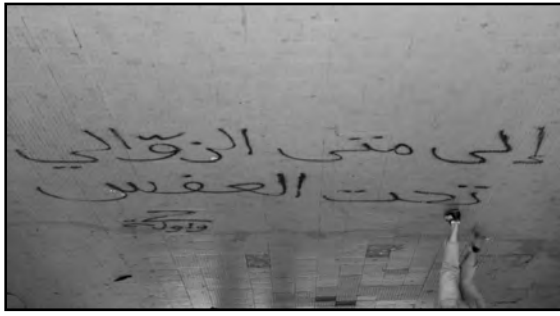 إلى متى الزوّالي
تحت العفس
واولة